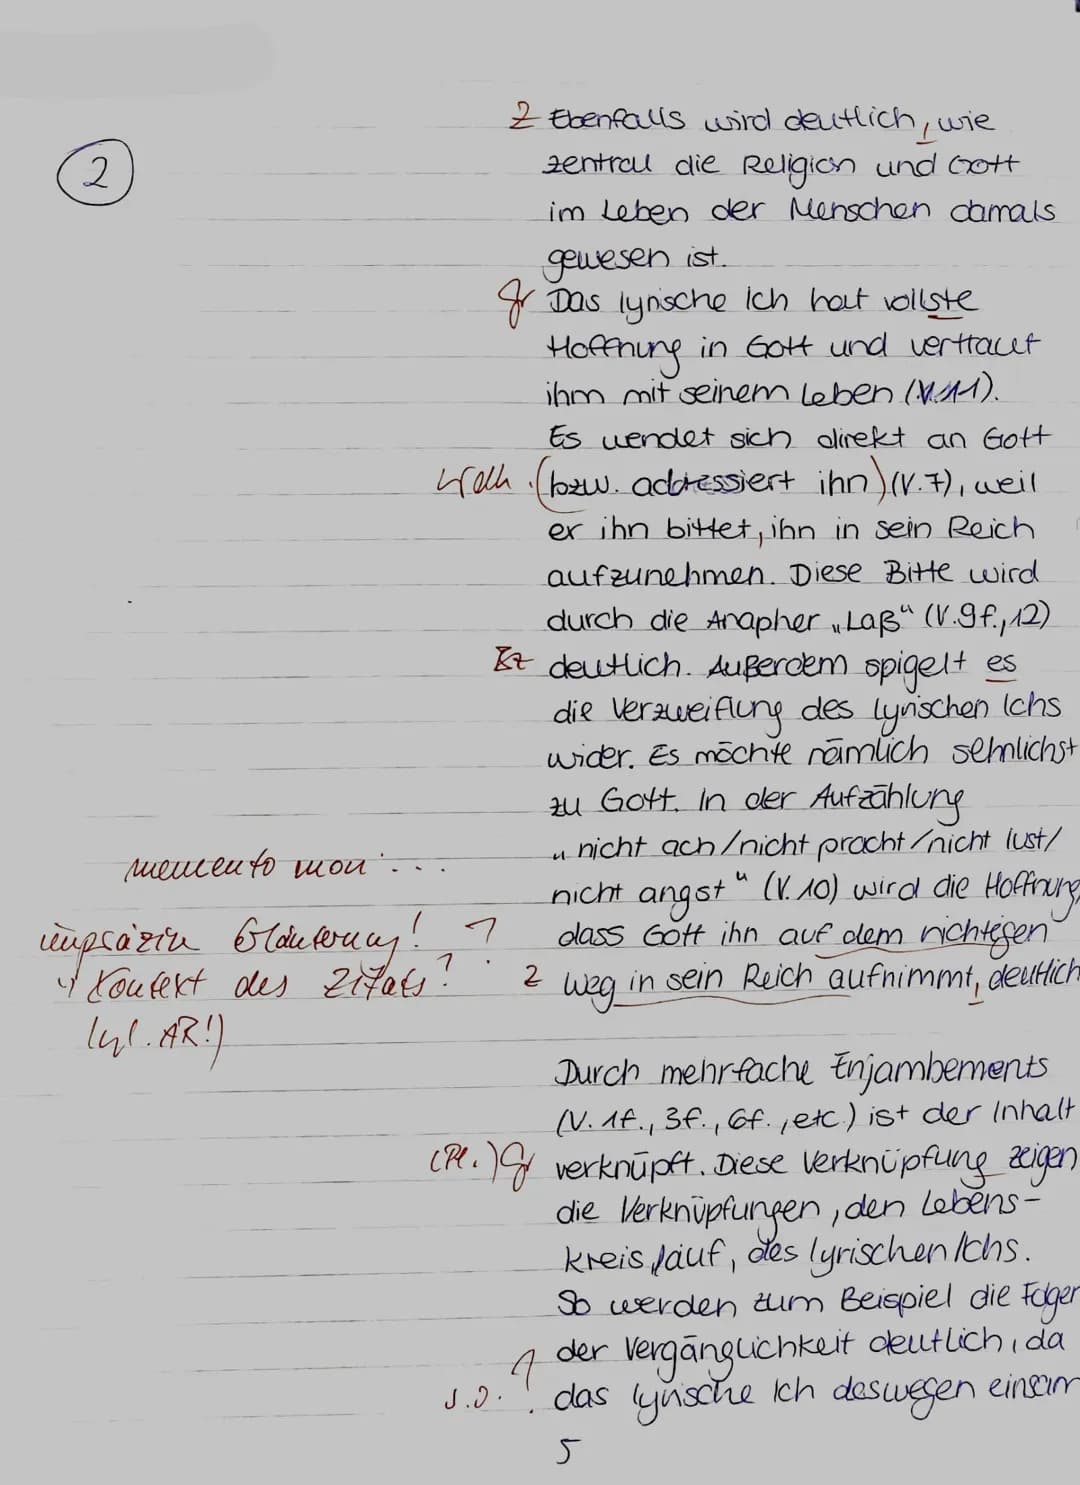 2
Z Ebenfalls wird deutlich, wie
zentral die Religion und Gott
im Leben der Menschen damals
gewesen ist.
Gr Das lyrische Ich hat vollste
Hoffnung in Gott und vertraut
ihm mit seinem Leben (V.11).
Es wendet sich direkt an Gott
Wdh. (bzw. addressiert ihn) (V.7), weil
er ihn bittet, ihn in sein Reich
aufzunehmen. Diese Bitte wird
durch die Anapher „Laß“ (V.9f., 12)
Bz deutlich. Außerdem spigelt es
die Verzweiflung des lyrischen Ichs
wider. Es möchte nämlich sehnlichst
zu Gott. In der Aufzählung
„nicht ach/nicht pracht/nicht lust/
memento mori...
nicht angst“ (V. 10) wird die Hoffnung,
unpräzise Erläuterung! ? dass Gott ihn auf dem richtigen
Kontext des Zitats? Z Weg in sein Reich aufnimmt, deutlich
(vgl. AR!)
Durch mehrfache Enjambements
(V. 1f., 3f., 6f., etc.) ist der Inhalt
(Pl.) Gr verknüpft. Diese Verknüpfung zeigen
die Verknüpfungen, den Lebens-
kreislauf, des lyrischen Ichs.
So werden zum Beispiel die Folgen
der Vergänglichkeit deutlich, da
s.o. ? das lyrische Ich deswegen einsam
5